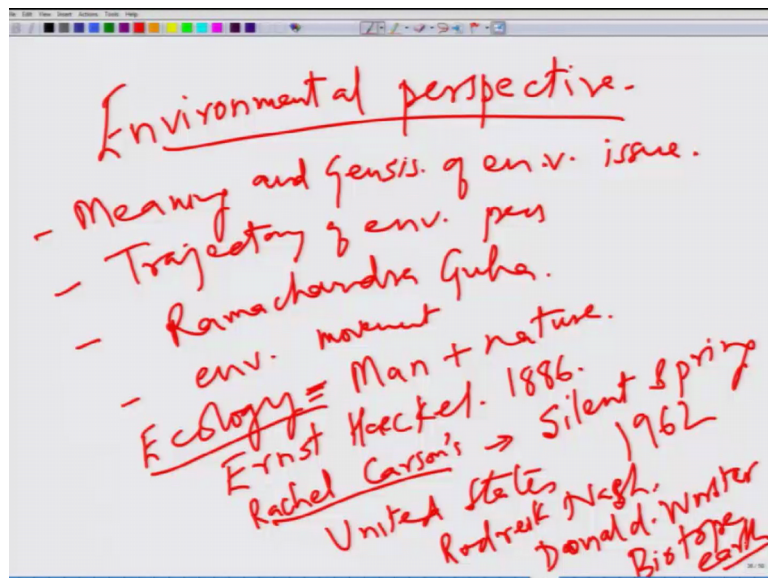 File Edit View Insert Actions Tools Help
Environmental perspective.
- Meaning and Gensis. of env. issue.
- Trajectory of env. pers
- Ramachandra Guha.
- env. movement
Ecology = Man + nature.
Ernst Haeckel. 1886.
Rachel Carson's → Silent Spring
1962
United States
Rodreik Nash.
Donald. Worster
Biotope
earth